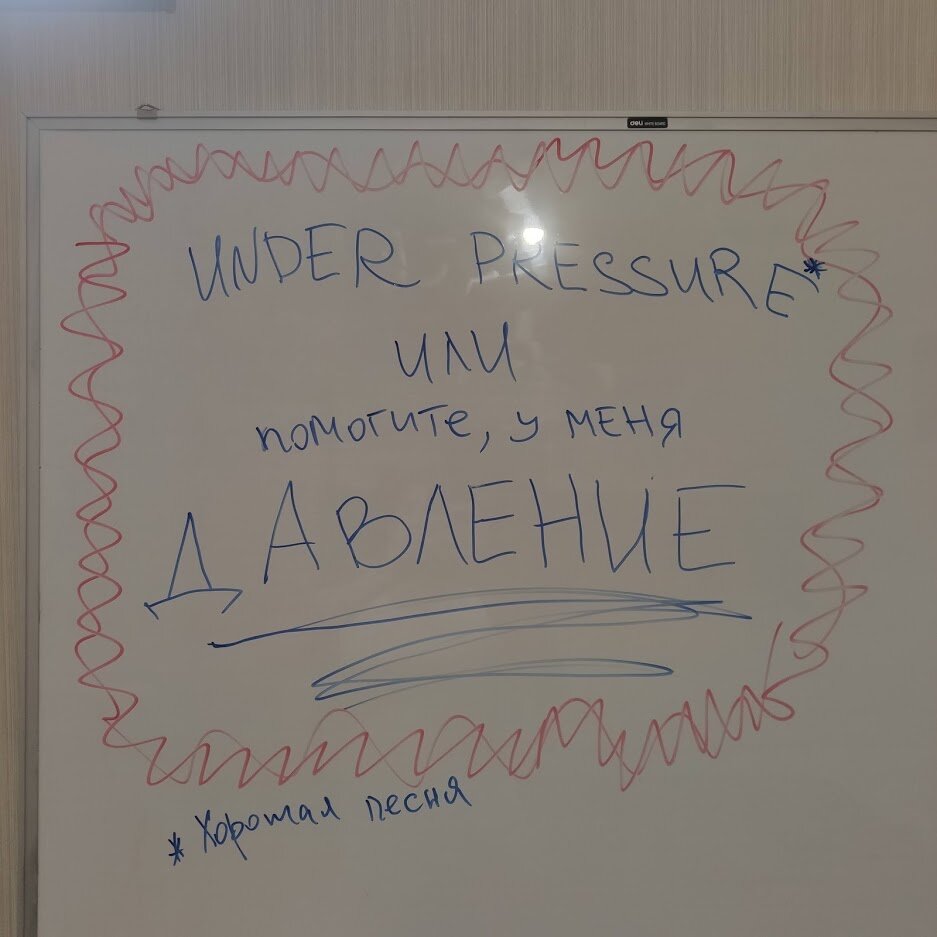 deli WHITE BOARD
UNDER PRESSURE*
ИЛИ
помогите, у меня
ДАВЛЕНИЕ
* Хорошая песня